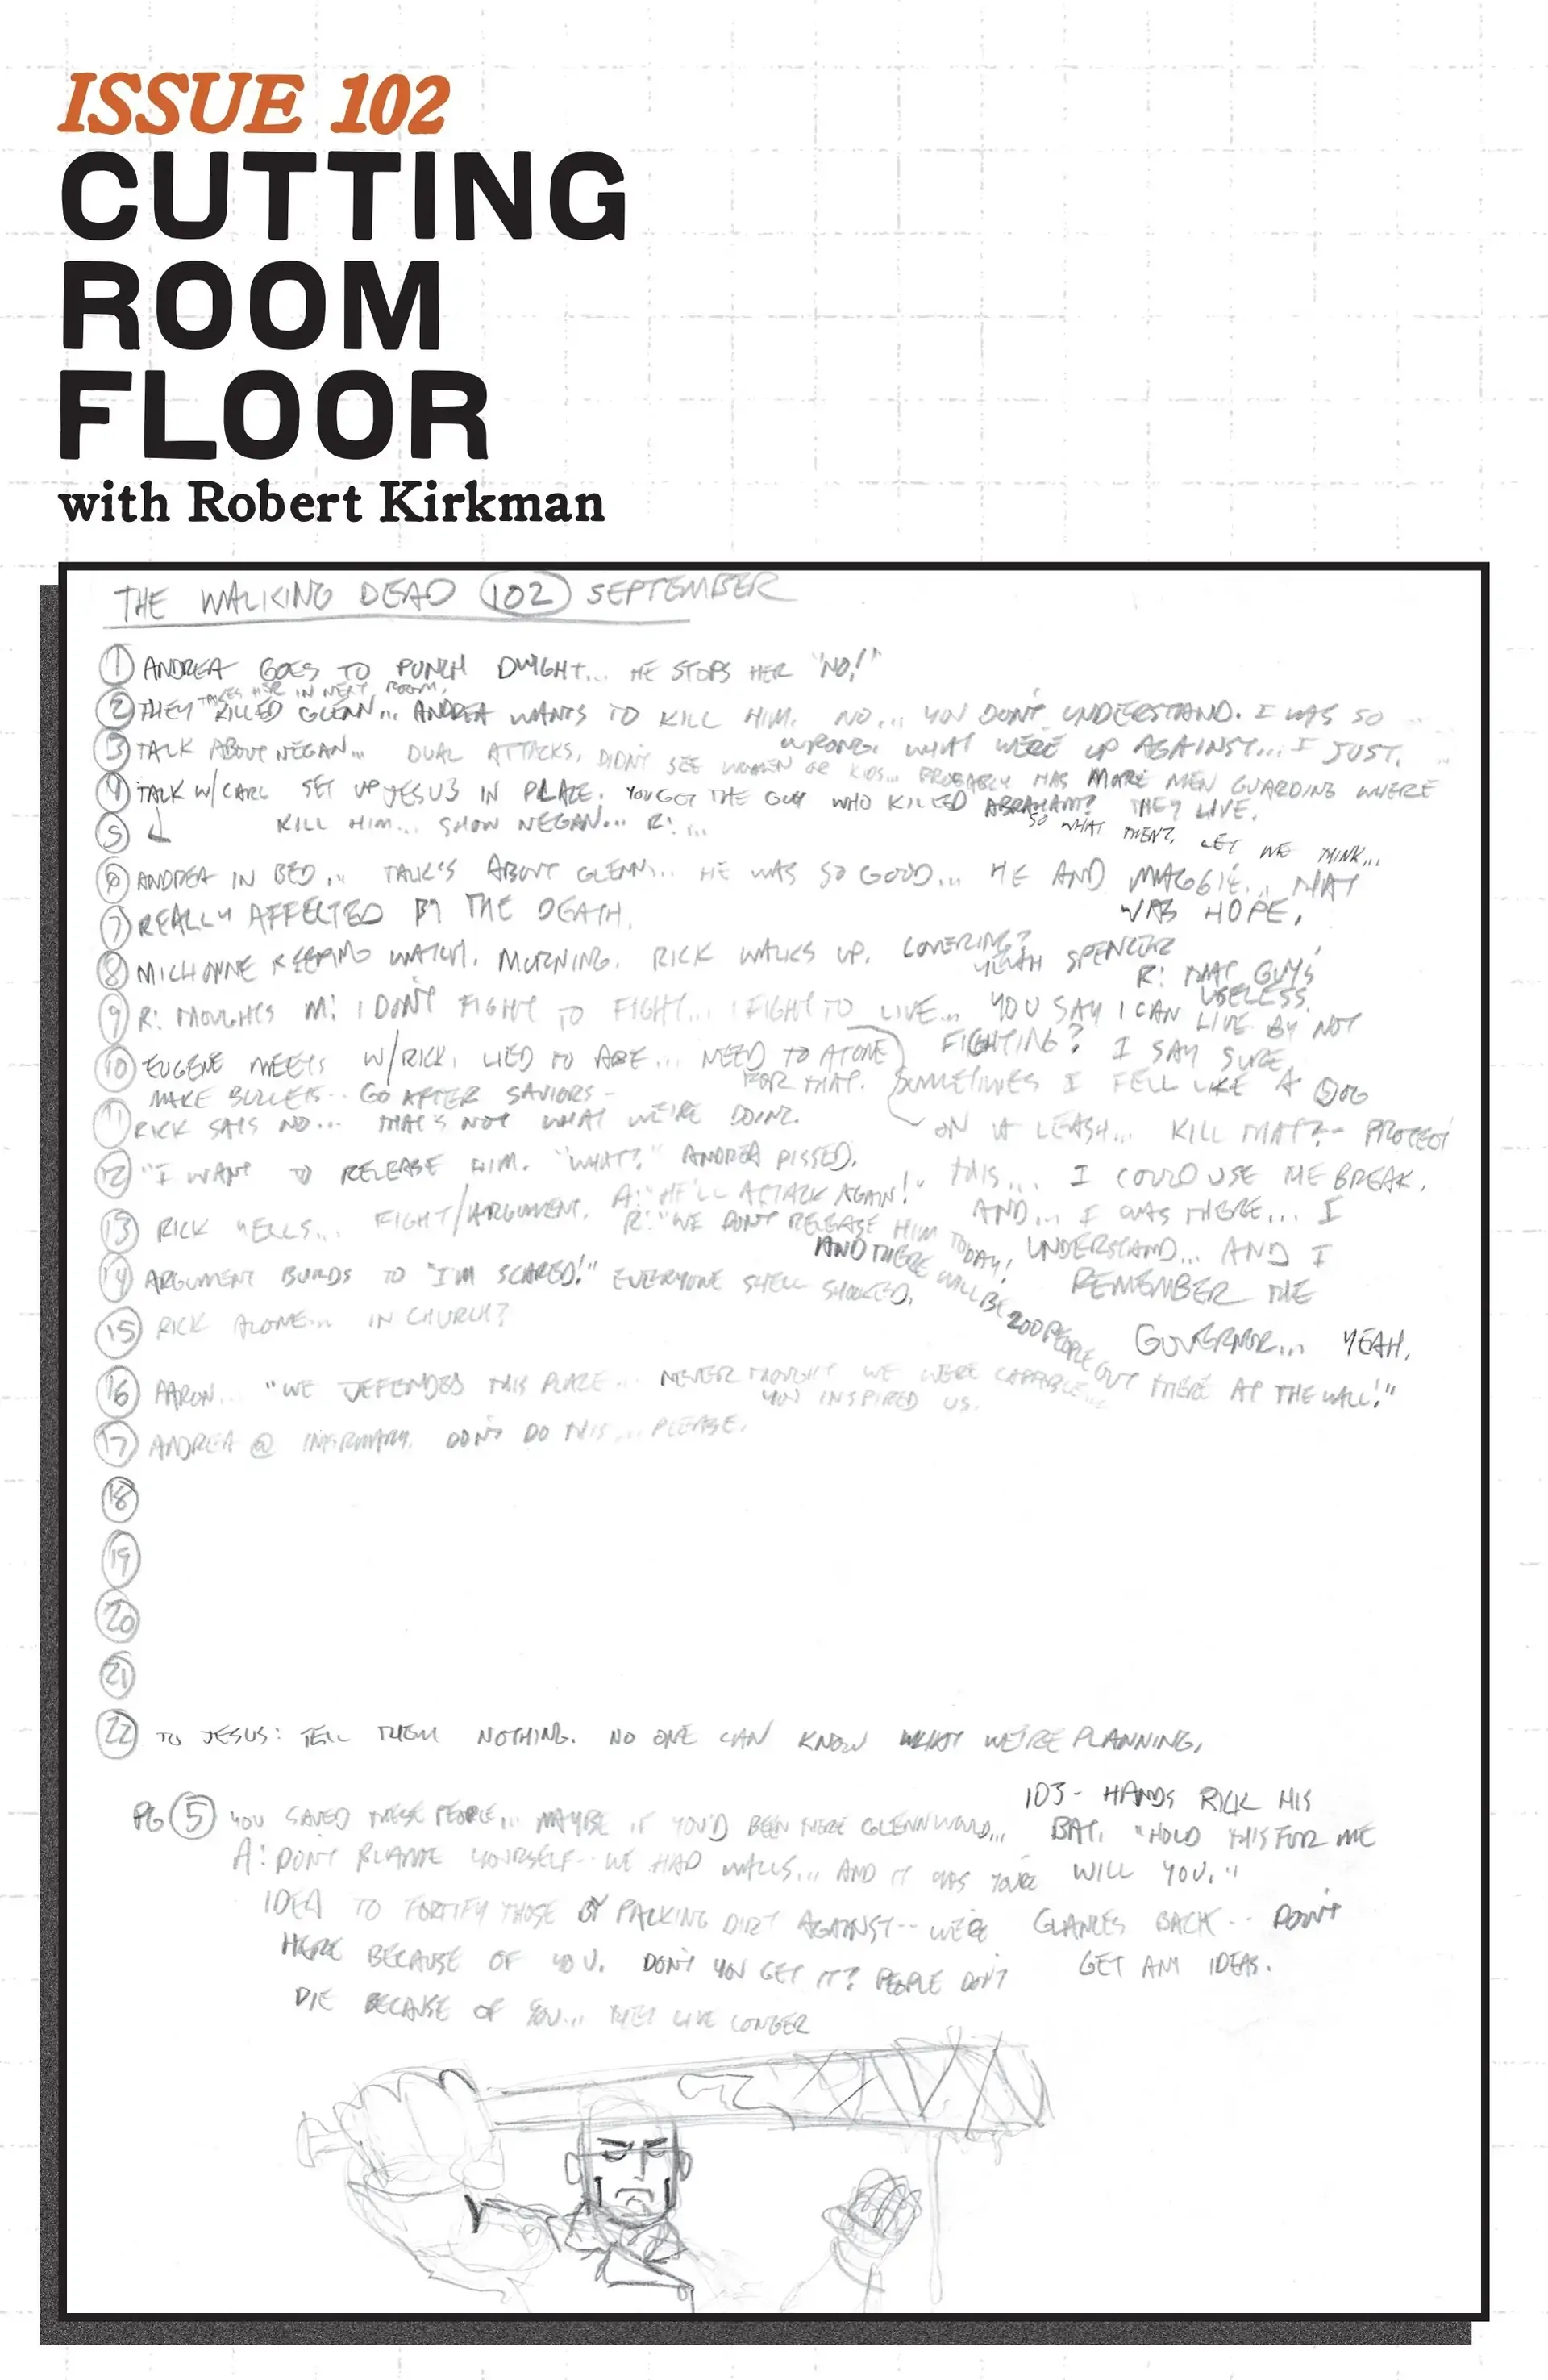 ISSUE 102
CUTTING
ROOM
FLOOR
with Robert Kirkman
THE WALKING DEAD 102 SEPTEMBER
1 ANDREA GOES TO PUNCH DWIGHT... HE STOPS HER "NO!"
TAKES HER IN NEXT ROOM.
2 THEY KILLED GLENN... ANDREA WANTS TO KILL HIM. NO... YOU DON'T UNDERSTAND. I WAS SO
WRONG. WHAT WE'RE UP AGAINST... I JUST.
3 TALK ABOUT NEGAN... DUAL ATTACKS, DIDN'T SEE WOMEN OR KIDS... PROBABLY HAS MORE MEN GUARDING WHERE
THEY LIVE.
4 TALK W/CARL SET UP JESUS IN PLACE. YOU GOT THE GUY WHO KILLED ABRAHAM?
SO WHAT THEN? LET ME THINK...
5 KILL HIM... SHOW NEGAN... R: ...
6 ANDREA IN BED... TALK'S ABOUT GLENN... HE WAS SO GOOD... HE AND MAGGIE... THAT
WAS HOPE.
7 REALLY AFFECTED BY THE DEATH.
8 MICHONNE KEEPING WATCH. MORNING. RICK WALKS UP. COVERING?
YEAH SPENCER
R: THAT GUY'S
USELESS.
9 R: THOUGHTS M: I DON'T FIGHT TO FIGHT... I FIGHT TO LIVE... YOU SAY I CAN LIVE BY NOT
FIGHTING? I SAY SURE.
10 EUGENE MEETS W/RICK. LIED TO ABE... NEED TO ATONE
FOR THAT.
MAKE BULLETS.. GO AFTER SAVIORS -
SOMETIMES I FELL LIKE A DOG
ON A LEASH... KILL THAT?- PROTECT
THIS... I COULD USE THE BREAK.
AND... I WAS THERE... I
UNDERSTAND... AND I
REMEMBER THE
GOVERNOR... YEAH.
11 RICK SAYS NO... THAT'S NOT WHAT WE'RE DOING.
12 "I WANT TO RELEASE HIM. "WHAT?" ANDREA PISSED.
13 RICK YELLS... FIGHT/ARGUMENT. A: "HE'LL ATTACK AGAIN!"
R: "WE DON'T RELEASE HIM TODAY!
AND THERE WILL BE 200 PEOPLE OUT THERE AT THE WALL!"
14 ARGUMENT BUILDS TO "I'M SCARED!" EVERYONE SHELL SHOCKED.
15 RICK ALONE... IN CHURCH?
16 AARON... "WE DEFENDED THIS PLACE... NEVER THOUGHT WE WERE CAPABLE...
YOU INSPIRED US.
17 ANDREA @ INFIRMARY. DON'T DO THIS... PLEASE.
18
19
20
21
22 TO JESUS: TELL THEM NOTHING. NO ONE CAN KNOW WHAT WE'RE PLANNING.
PG 5 YOU SAVED THESE PEOPLE... MAYBE IF YOU'D BEEN THERE GLENN WOULD...
A: DON'T BLAME YOURSELF-- WE HAD WALLS... AND IT WAS YOUR
IDEA TO FORTIFY THOSE BY PACKING DIRT AGAINST-- WE'RE
HERE BECAUSE OF YOU. DON'T YOU GET IT? PEOPLE DON'T
DIE BECAUSE OF YOU... THEY LIVE LONGER
103- HANDS RICK HIS
BAT. "HOLD THIS FOR ME
WILL YOU."
GLANCES BACK-- DON'T
GET ANY IDEAS.